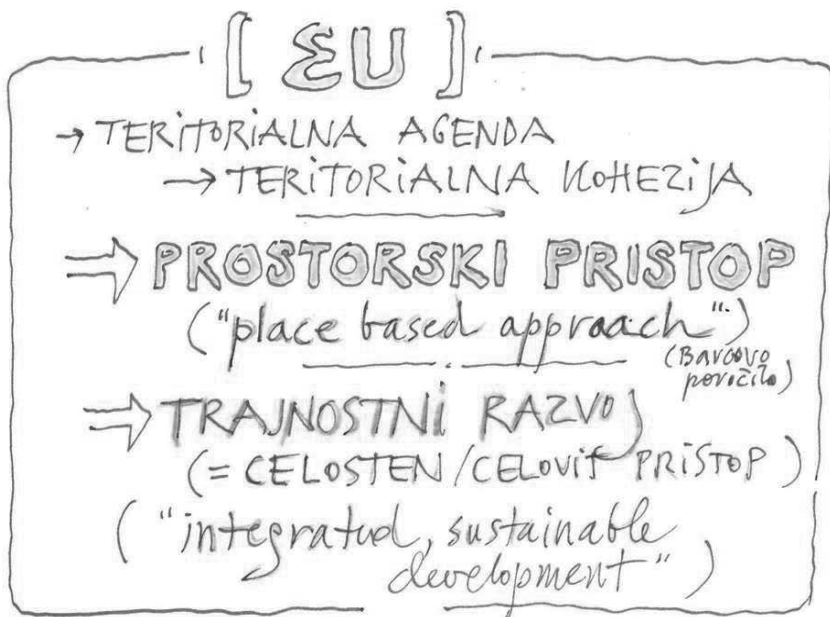 [ EU ]
→ TERITORIALNA AGENDA
→ TERITORIALNA KOHEZIJA
⇒ PROSTORSKI PRISTOP
("place based approach")
(Barcovo
poročilo)
⇒ TRAJNOSTNI RAZVOJ
(= CELOSTEN/CELOVIT PRISTOP)
("integrated, sustainable
development")